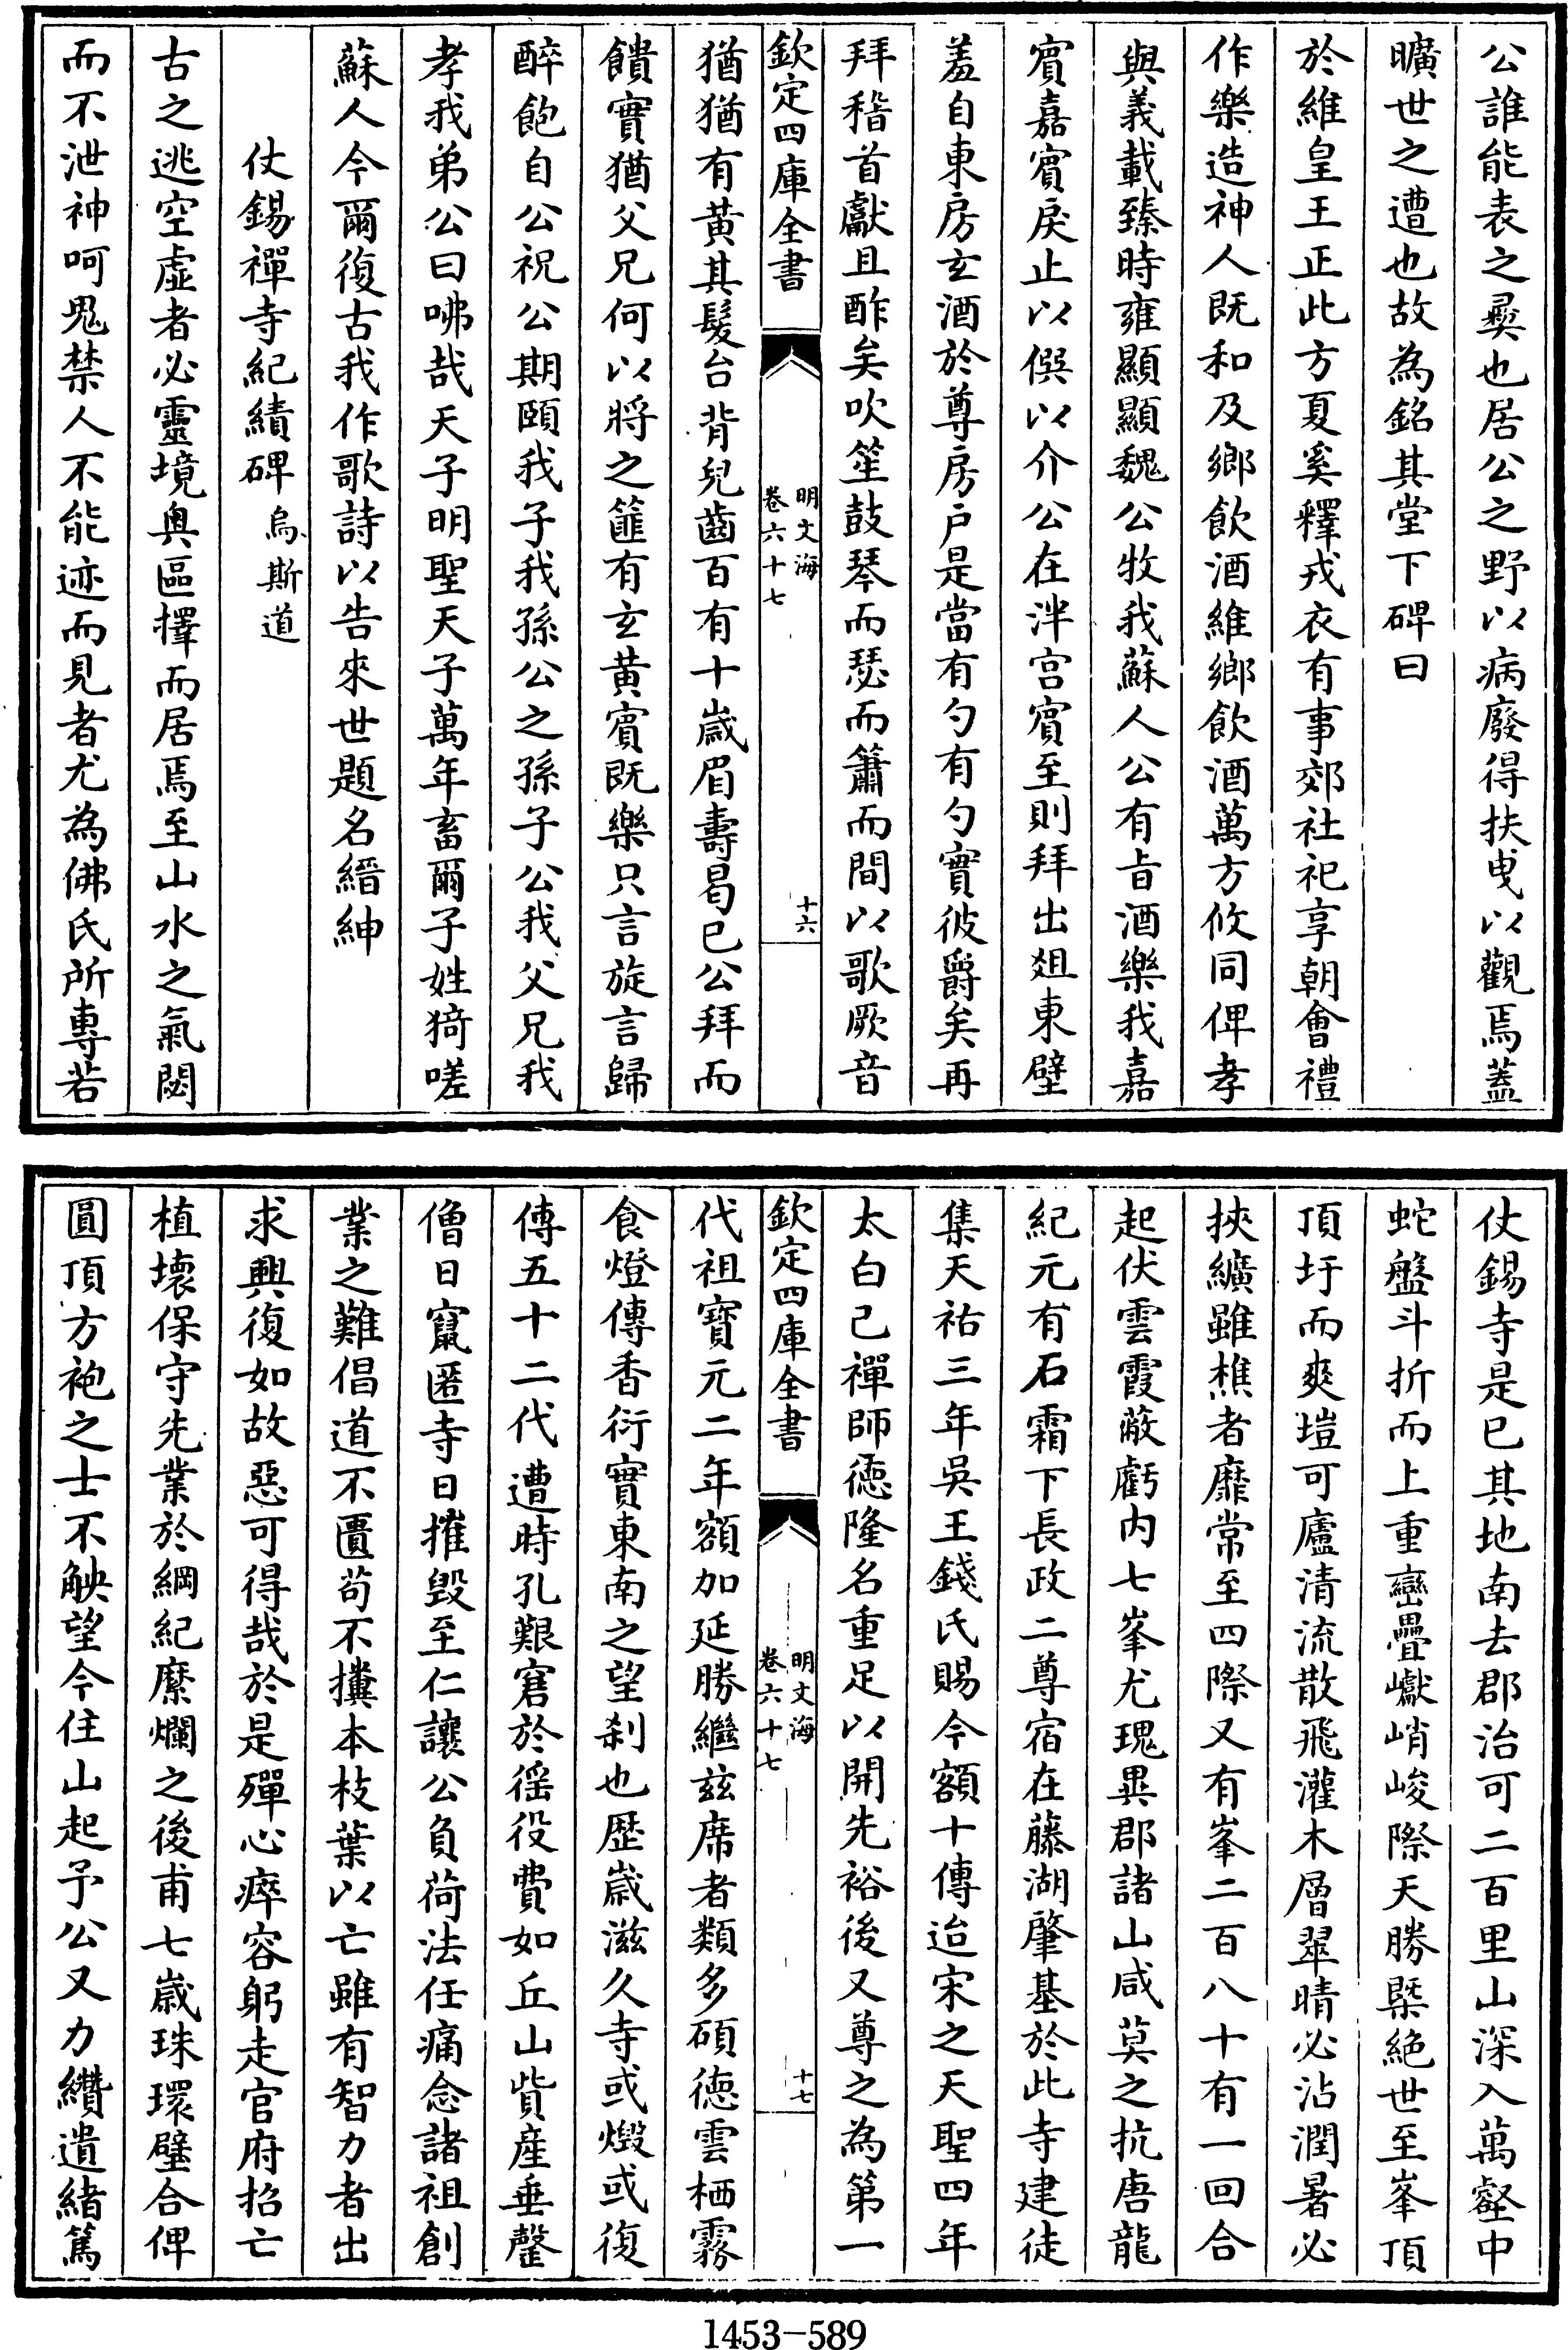 公誰能表之彛也居公之野以病廢得扶曵以觀焉蓋
曠世之遭也故為銘其堂下碑曰
於維皇王正此方夏奚釋戎衣有事郊社祀享朝會禮
作樂造神人既和及鄉飲酒維鄉飲酒萬方攸同俾孝
與義載臻時雍顯顯魏公牧我蘇人公有㫖酒樂我嘉
賔嘉賔戾止以僎以介公在泮宫賔至則拜出爼東壁
羞自東房玄酒於尊房户是當有勺有勺實彼爵矣再
拜稽首獻且酢矣吹笙鼓琴而瑟而簫而間以歌厥音
欽定四庫全書
明文海
卷六十七
十六
猶猶有黄其髮台背兒齒百有十嵗眉壽曷已公拜而
饋實猶父兄何以將之篚有玄黄賔既樂只言旋言歸
醉飽自公祝公期頤我子我孫公之孫子公我父兄我
孝我弟公曰咈哉天子明聖天子萬年畜爾子姓猗嗟
蘇人今爾復古我作歌詩以告來世題名縉紳
仗錫禪寺紀績碑 烏斯道
古之逃空虛者必靈境奥區擇而居焉至山水之氣閟
而不泄神呵鬼禁人不能迹而見者尤為佛氏所專若
仗錫寺是已其地南去郡治可二百里山深入萬壑中
蛇盤斗折而上重巒疊巘峭峻際天勝槩絶世至峯頂
頂圩而爽塏可廬清流散飛灌木層翠晴必沾潤暑必
挾纊雖樵者靡常至四際又有峯二百八十有一回合
起伏雲霞蔽虧内七峯尤瑰異郡諸山咸莫之抗唐龍
紀元有石霜下長政二尊宿在藤湖肇基於此寺建徒
集天祐三年吳王錢氏賜今額十傳迨宋之天聖四年
太白己禪師徳隆名重足以開先裕後又尊之為第一
欽定四庫全書
明文海
卷六十七
十七
代祖寳元二年額加延勝繼兹席者類多碩徳雲栖霧
食燈傳香衍實東南之望刹也歴嵗滋久寺或燬或復
傳五十二代遭時孔艱窘於徭役費如丘山貲産垂罄
僧日竄匿寺日摧毁至仁讓公負荷法任痛念諸祖創
業之難倡道不匱苟不攩本枝葉以亡雖有智力者出
求興復如故惡可得哉於是殫心瘁容躬走官府招亡
植壊保守先業於綱紀縻爛之後甫七嵗珠環璧合俾
圓頂方袍之士不觖望今住山起予公又力纘遺緒篤
1453-589